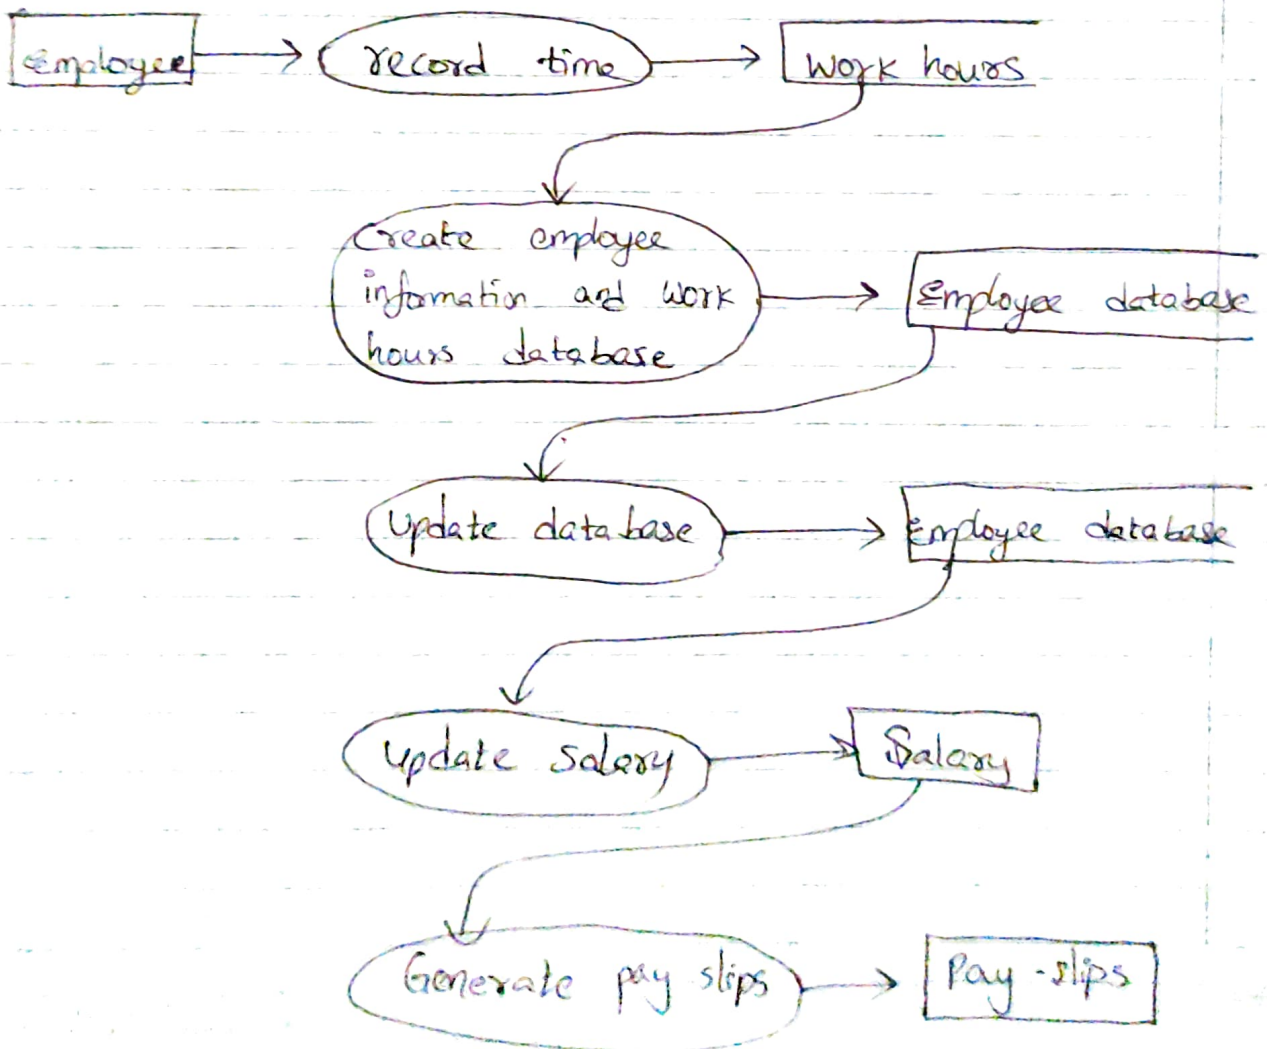 Employee
record time
Work hours
Create employee
information and work
hours database
Employee database
Update database
Employee database
Update Salary
Salary
Generate pay slips
Pay-slips